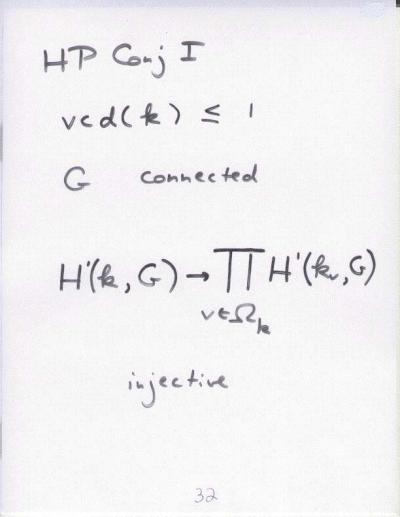 HP Conj I
vcd(k) ≤ 1
G connected
H¹(k, G) → ∏ H¹(kᵥ, G)
v∈Ωₖ
injective
32